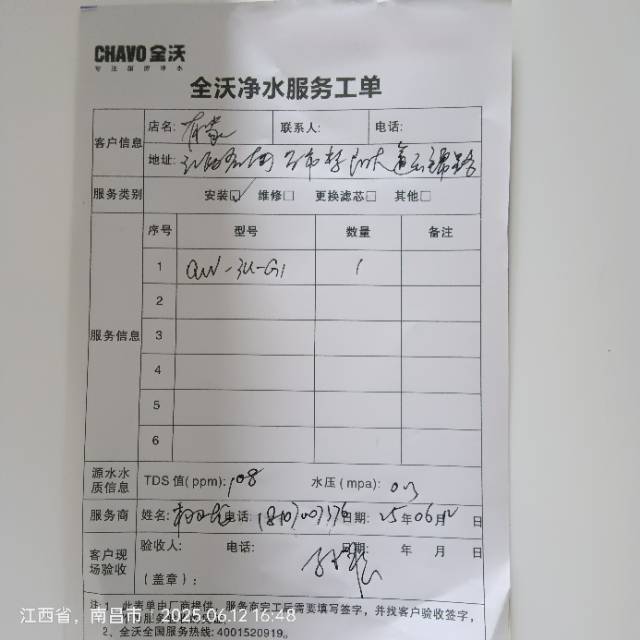 CHAVO 全沃
专注厨房净水
全沃净水服务工单
客户信息 店名: 联系人: 电话:
地址:
服务类别 安装☑ 维修□ 更换滤芯□ 其他□
服务信息 序号 型号 数量 备注
1 QW-3U-G1 1
2
3
4
5
6
源水水质信息 TDS 值(ppm): 108 水压(mpa): 0.3
服务商 姓名: 电话: 日期: 25年06月12日
客户现场验收 验收人: 电话: 日期: 年 月 日
(盖章):
注:1、此表单由厂商提供，服务商完工后需要填写签字，并找客户验收签字，
2、全沃全国服务热线: 4001520919。
江西省，南昌市 2025.06.12 16:48